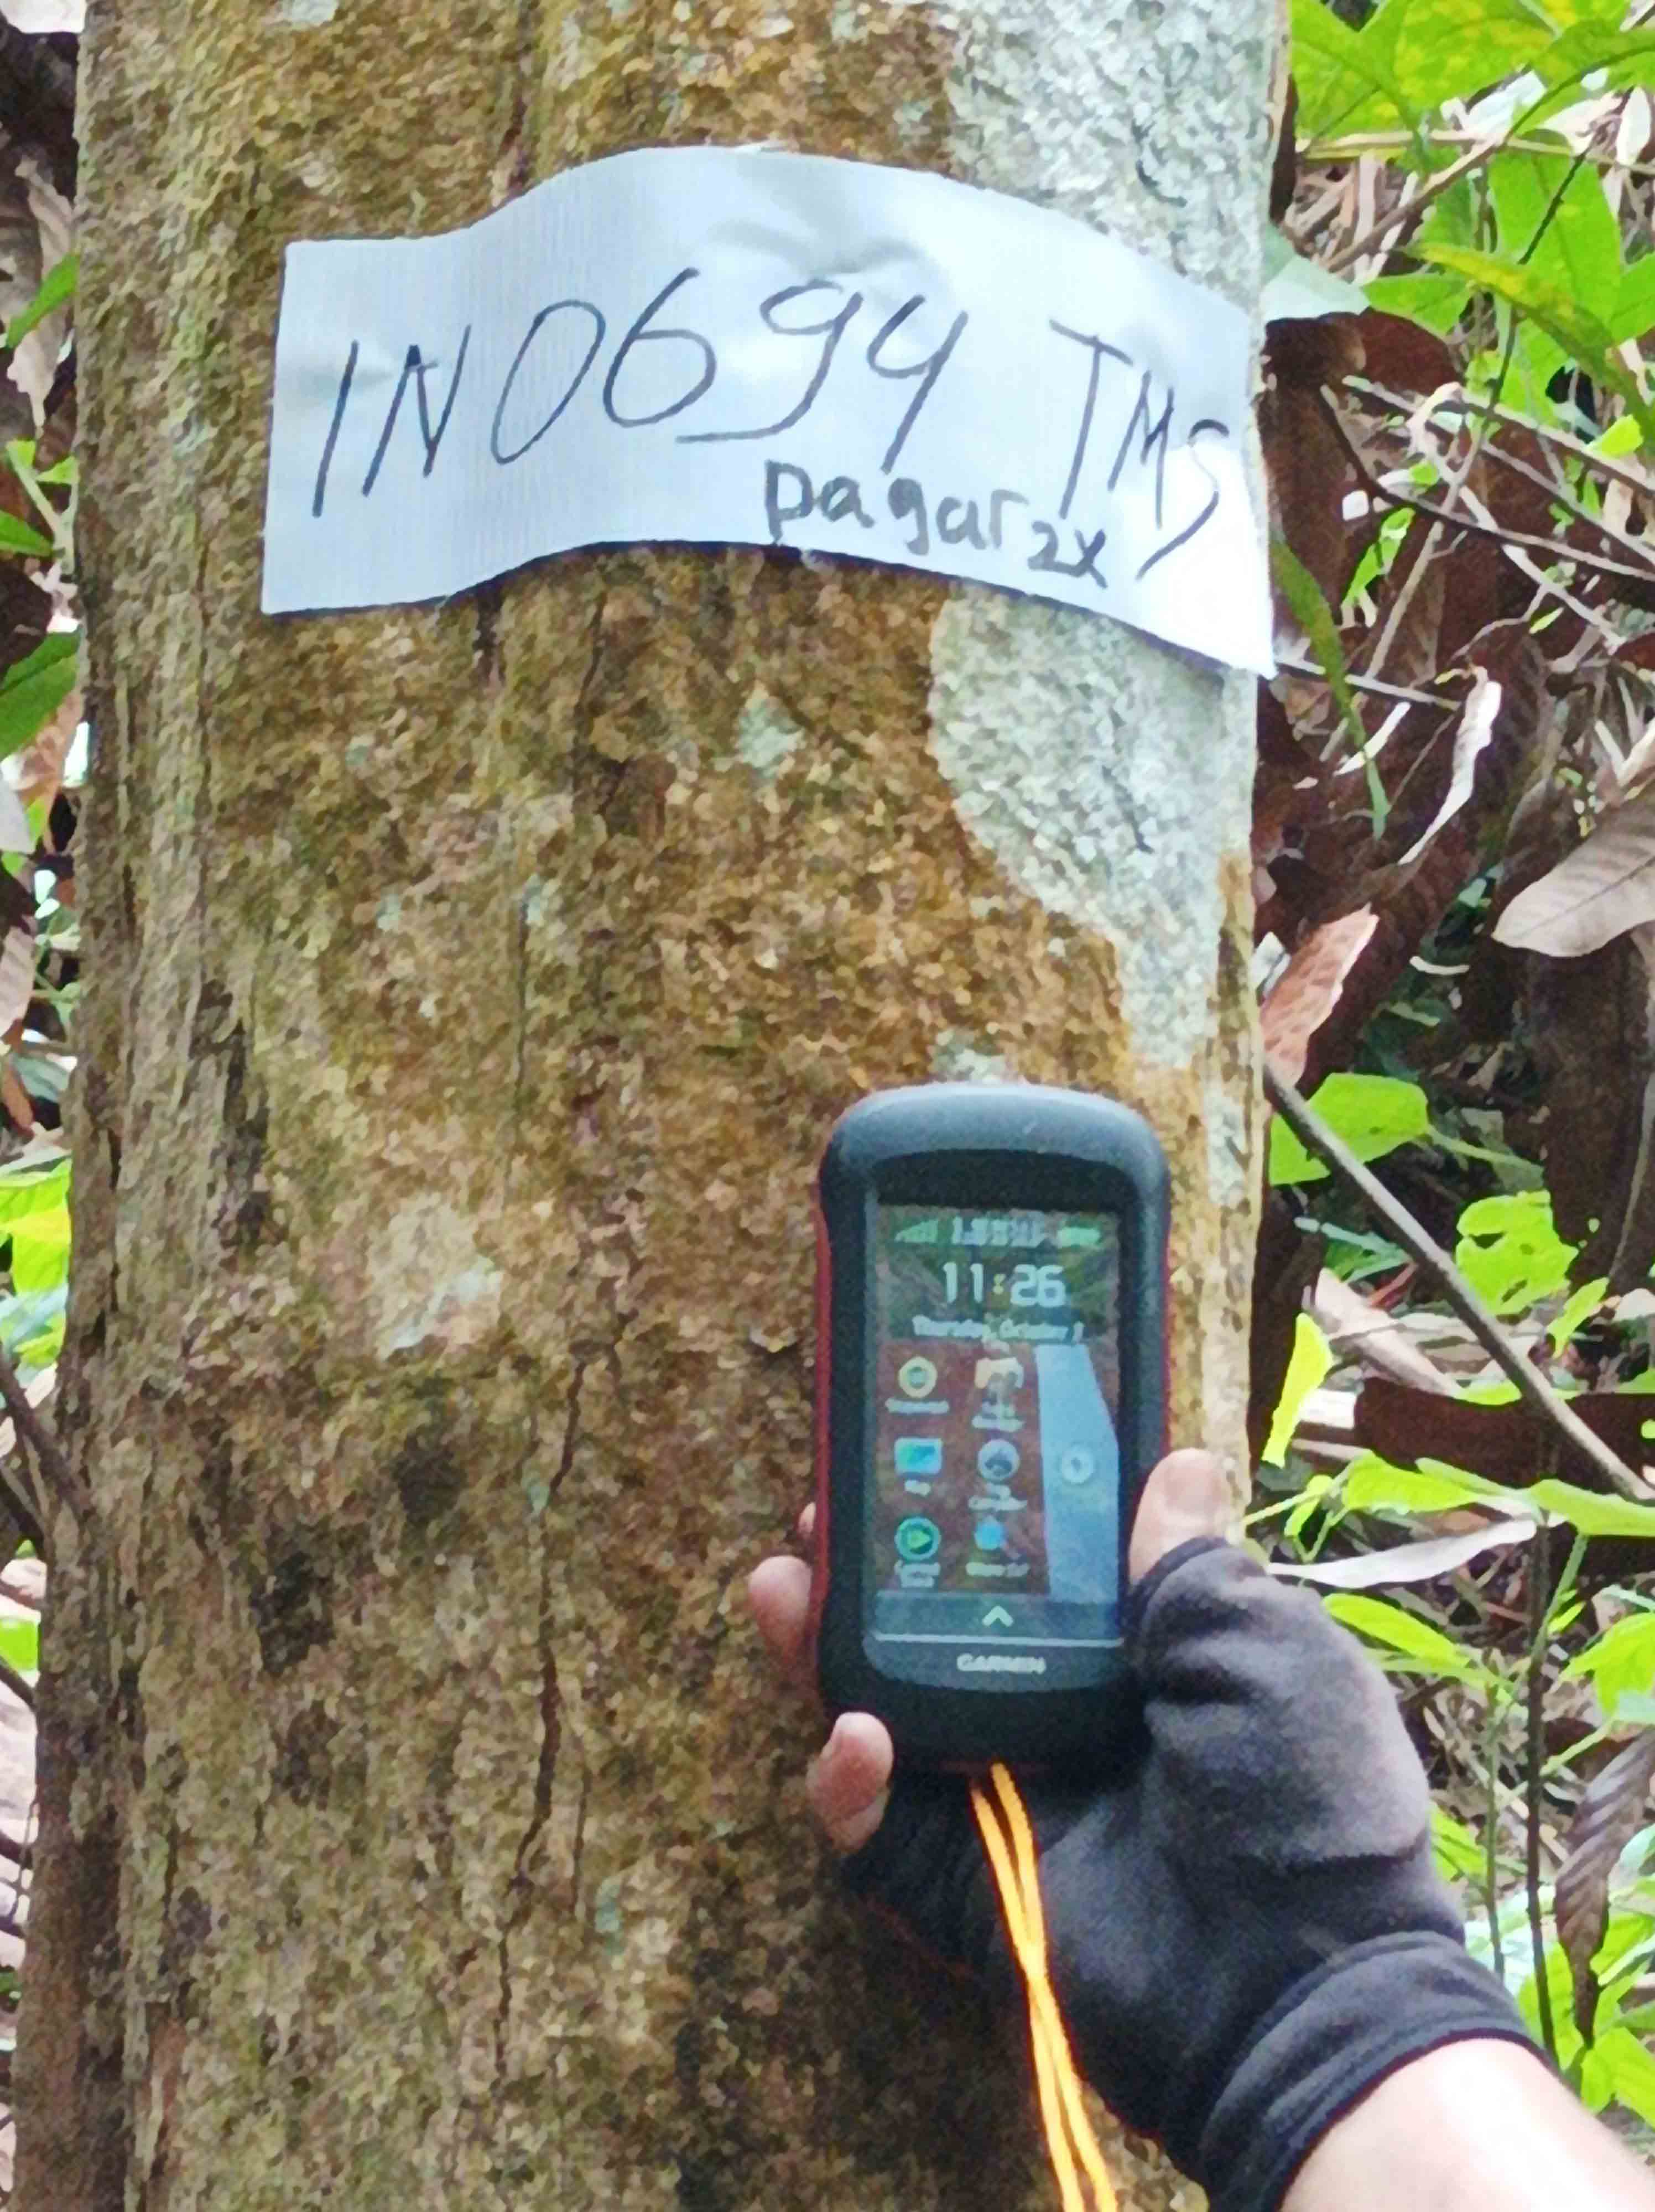 IN0694 TMS
pagar 2x
11:26
Thursday, October
GARMIN